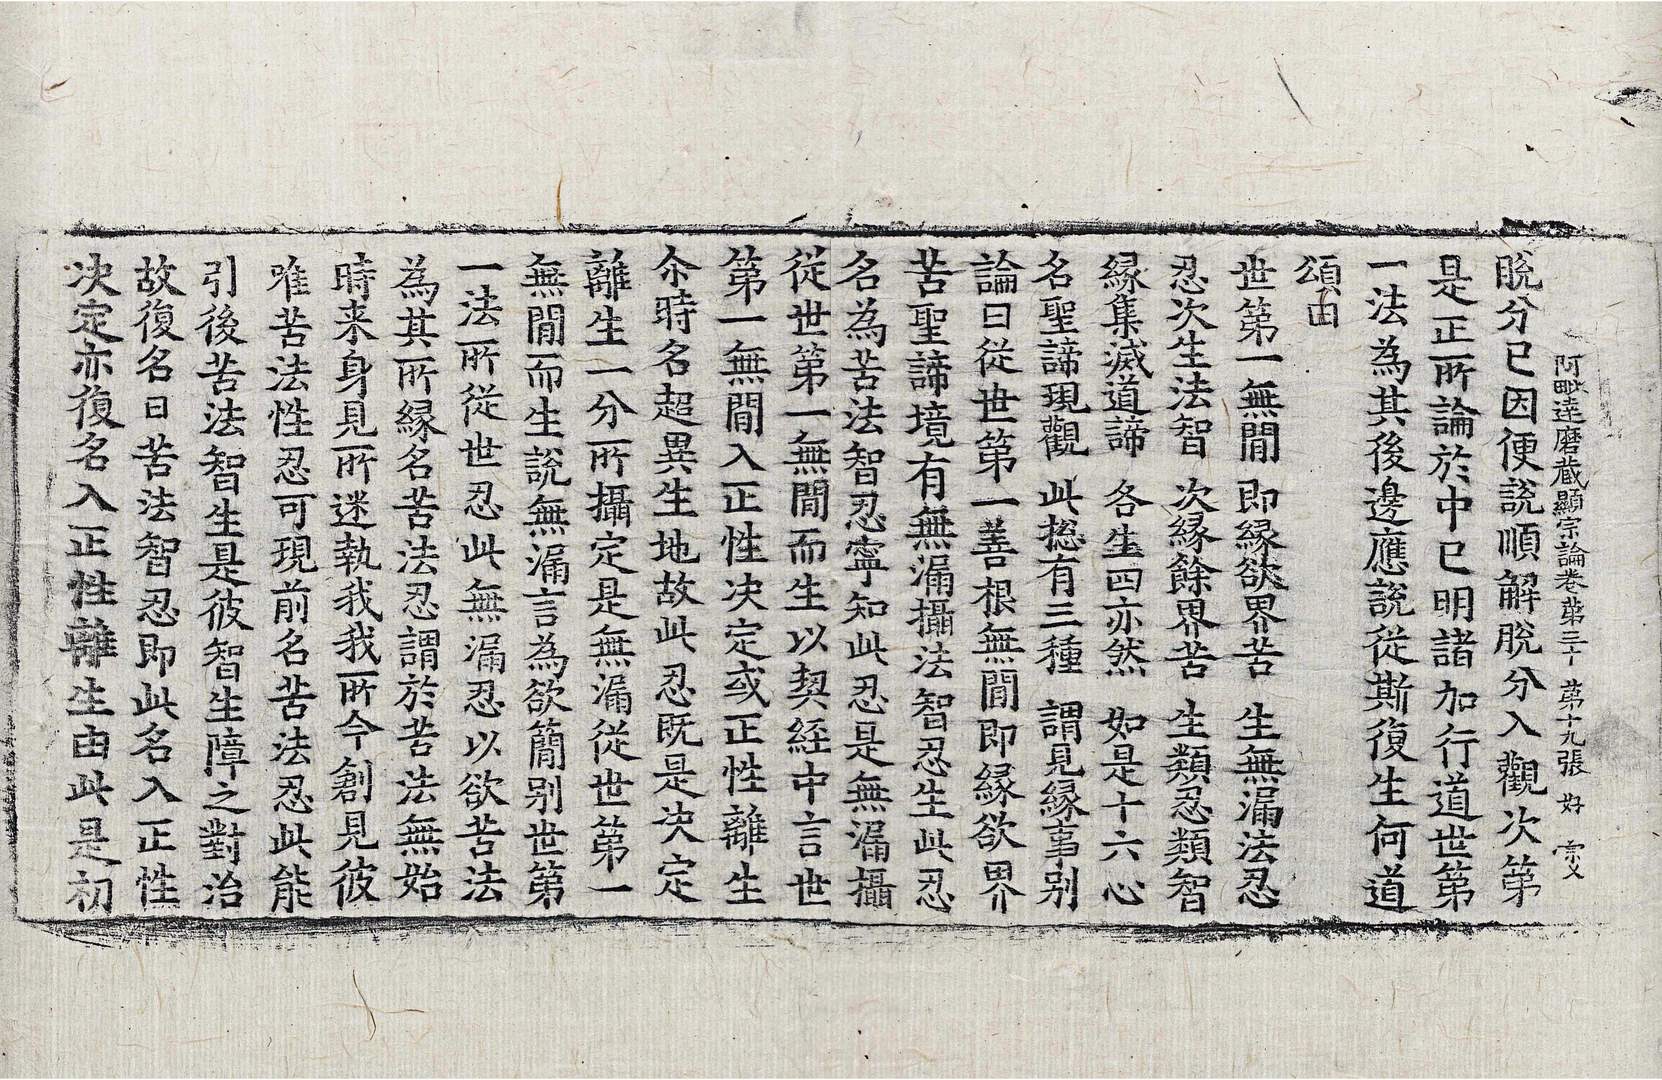 阿毗達磨藏顯宗論卷第三十 第十九張 好
脫分已因便說順解脫分入觀次第
是正所論於中已明諸加行道世第
一法為其後邊應說從斯復生何道
頌曰
世第一無閒 即緣欲界苦 生無漏法忍
忍次生法智 次緣餘界苦 生類忍類智
緣集滅道諦 各生四亦然 如是十六心
名聖諦現觀 此摠有三種 謂見緣事別
論曰從世第一善根無閒即緣欲界
苦聖諦境有無漏攝法智忍生此忍
名為苦法智忍寧知此忍是無漏攝
從世第一無閒而生以契經中言世
第一無閒入正性決定或正性離生
尒時名超異生地故此忍既是決定
離生一分所攝定是無漏從世第一
無閒而生說無漏言為欲簡別世第
一法所從世忍此無漏忍以欲苦法
為其所緣名苦法忍謂於苦法無始
時来身見所迷執我我所今創見彼
唯苦法性忍可現前名苦法忍此能
引後苦法智生是彼智生障之對治
故復名曰苦法智忍即此名入正性
決定亦復名入正性離生由此是初